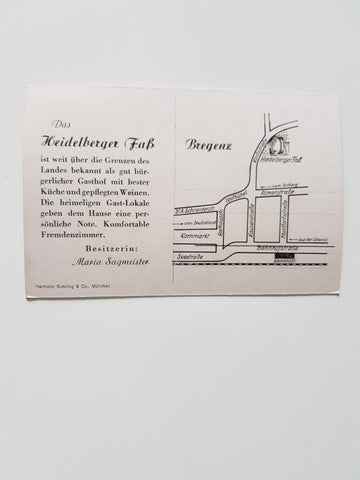 Das
Heidelberger Faß
ist weit über die Grenzen des
Landes bekannt als gut bür-
gerlicher Gasthof mit bester
Küche und gepflegten Weinen.
Die heimeligen Gast-Lokale
geben dem Hause eine per-
sönliche Note. Komfortable
Fremdenzimmer.
Besitzerin:
Maria Sagmeister
Hermann & Co., München
Bregenz
Heidelberger Faß
vom Arlberg
Römerstraße
Dr. A. Schneiderstr.
von Deutschland
Kornmarkt
Rathausstr.
aus der Schweiz
Bahnhofstraße
Seestraße
BAHNHOF